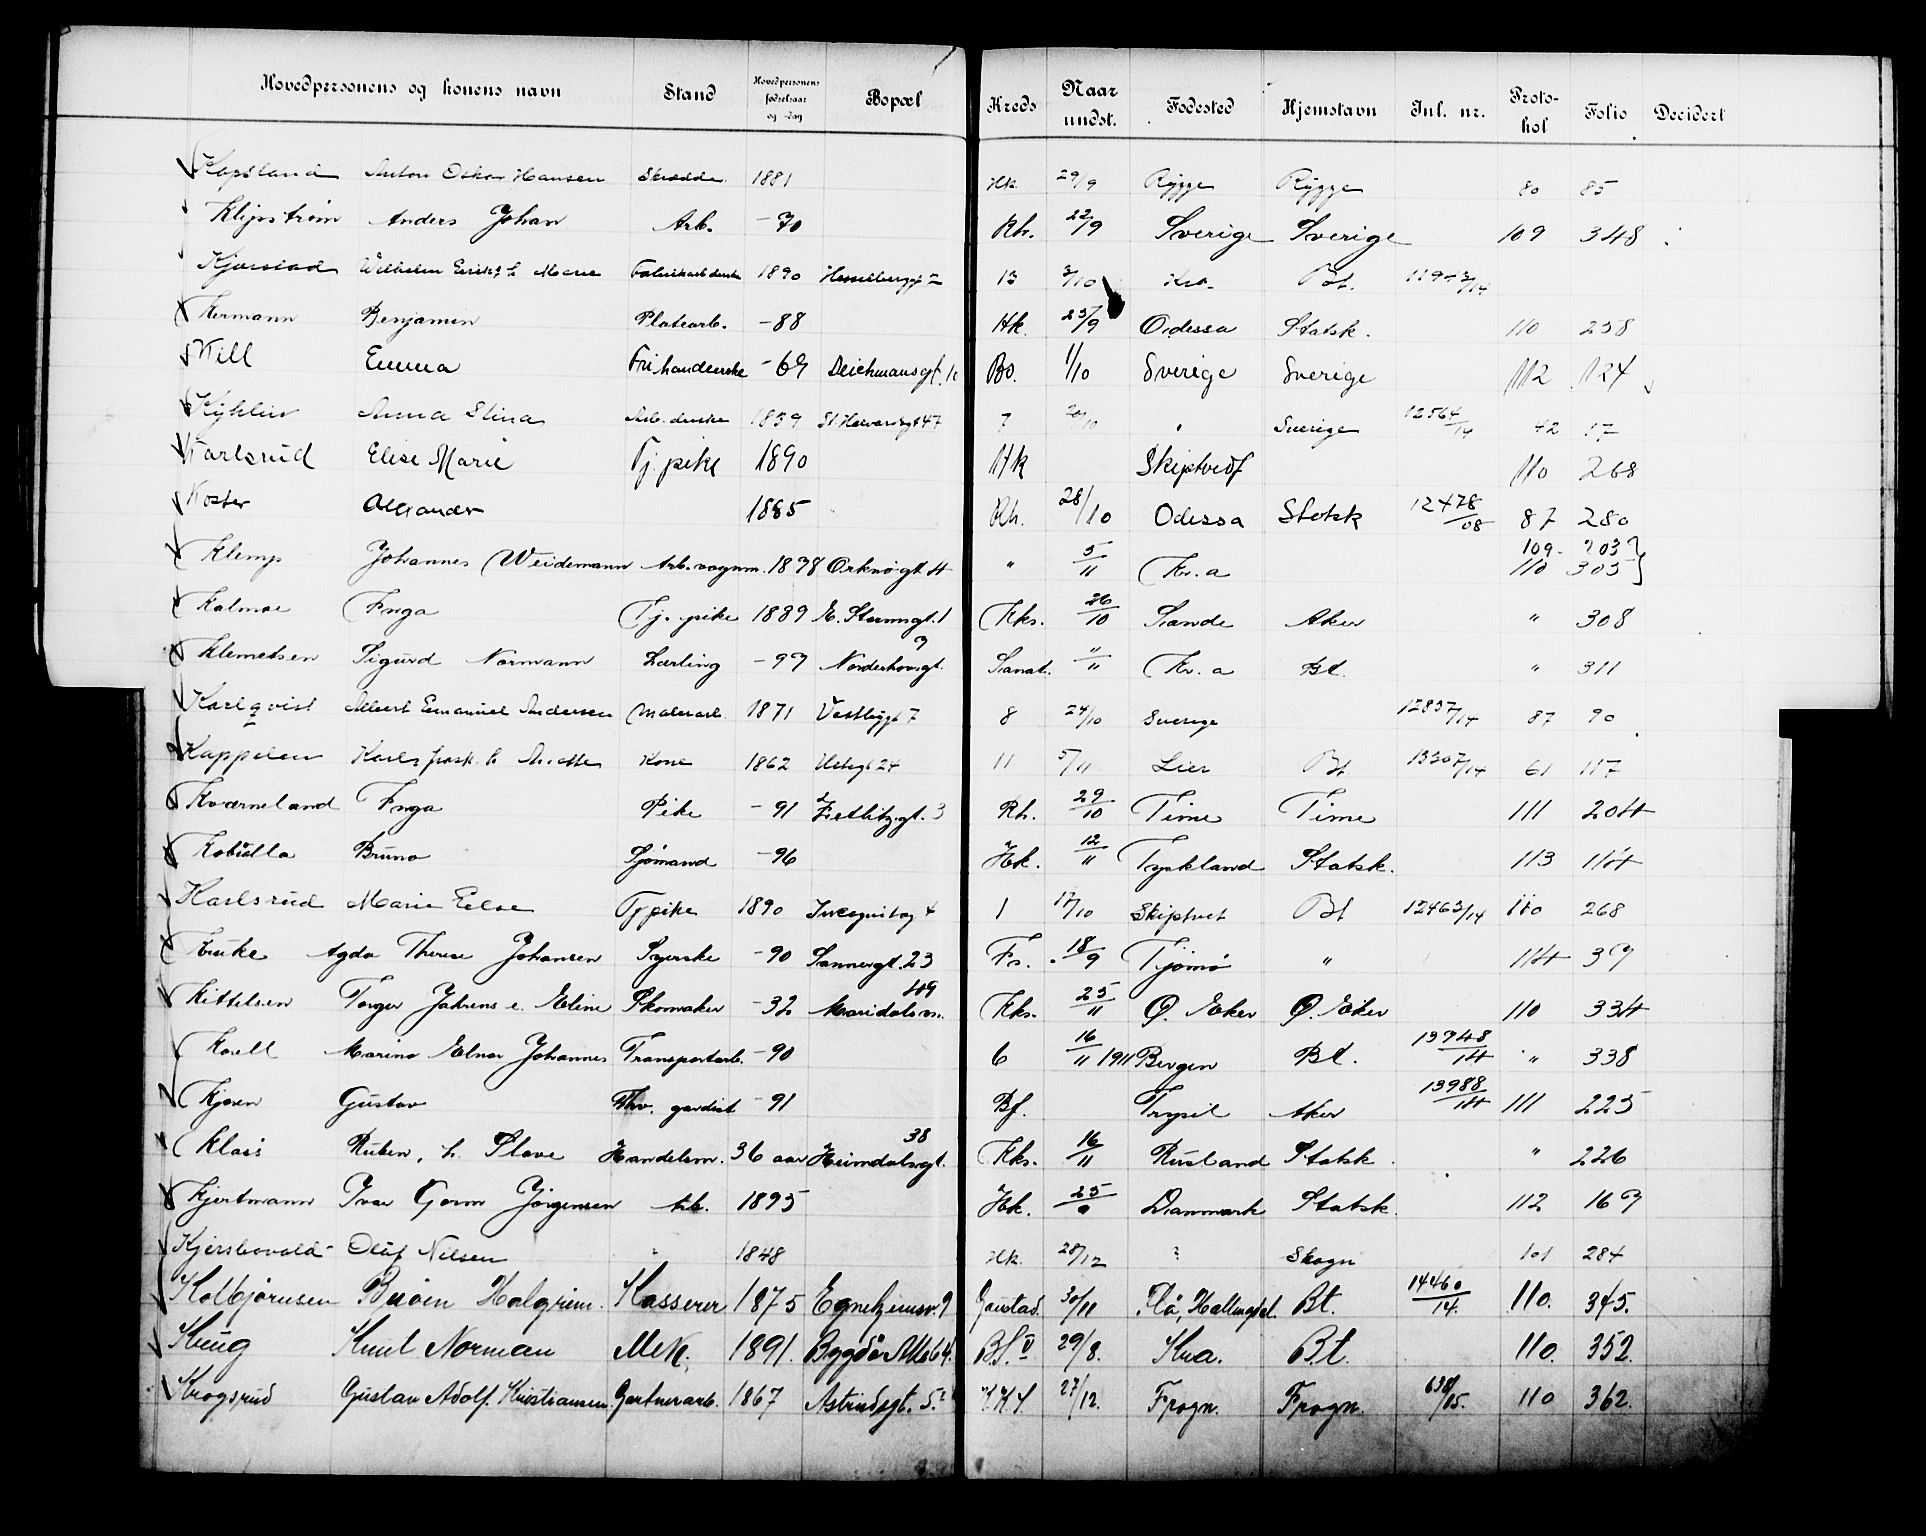 Hovedpersonens og konens navn Stand Hovedpersonens fødselsaar og -dag Bopæl Kreds Naar undst. Fødested Hjemstavn Inl. nr. Proto-kol Folio Decidert
Kopsland Anton Oskar Hansen Skrædder 1881 Hk. 29/9 Rygge Rygge 80 85
Klipström Anders Johan Arb. -70 Rh. 22/9 Sverige Sverige 109 348
Kjørstad Wilhelm h. Marie 1890 13 3/10 Kra. Bt.
Kermann Benjamin Platearb. -88 Hk. 25/9 Odessa Statsk. 110 258
Kill Emma Frihanderske -69 Deichmansgt. Bo. 1/10 Sverige Sverige 112 124
Kyhlin Anna Stina Arb. 1839 St. Halvardsgt 47 7 20/10 " Sverige 12564/14 42 17
Karlsrud Elise Marie Tj. pike 1890 Hk Skiptvedt 110 268
Koster Alexander 1885 Rh. 28/10 Odessa Statsk 12478/08 87 280
Klemp Johannes Weidemann Arb. vognm. 1878 Orknøgt 4 " 5/11 Kr.a 109 - 203
110 305
Kalmoe Inga Tj. pike 1889 E. Stormsgt. 1 Kks. 26/10 Sande Aker " 308
Klemetsen Sigurd Normann Lærling -99 Norderhovsgt. 9 Sanat. "/11 Kr.a Bt. " 311
Karlqvist Albert Emanuel Andersen Malerarb. 1871 Vestbygt 7 8 24/10 Sverige 12837/14 87 90
Kappelen Karls h. Anette Kone 1862 24 11 5/11 Lier Bt 13307/14 61 117
Kværneland Inga Pike -91 Zetlitzgt. 3 Rh. 29/10 Time Time 111 204
Kobidla Bruno Sjømand -96 Hk. 12/11 Tyskland Statsk. 113 114
Karlsrud Marie Eelse Tj pike 1890 Incognitog 4 1 17/10 Skiptvet Bt 12463/14 110 268
Agda Therese Johansen Syerske -90 Sannergt. 23 Fr. 18/9 Tjømø " 114 39
Kittelsen Torger Jahrens e. Eline Skomaker -32 Maridalsvn. 119 Kks. 25/11 Ø. Eker Ø. Eker 110 334
Koell Marino Elnar Johannes Transportarb. -90 6 16/11 1911 Bergen Bt. 13748/14 " 338
Kjøsen Gustav Fhv. gardist -91 Bf. Trysil Aker 13988/14 111 225
Klais Ruben, h. Slave Handelsm. 36 aar Heimdalsgt. 38 Kks. 16/11 Rusland Statsk. " 226
Kjertmann Ivar Gorm Jørgensen Arb. 1895 Hk. Danmark Statsk. 112 169
Kjersbovald Oluf Nilsen " 1848 Hk. 28/12 Skogn 101 284
Kolbjørnsen Halgrim. Kasserer 1875 Egnehjemsv. 9 Gaustad. 30/11 Flå, Hallingdal. Bt. 14460/14. 110. 345.
Krug Knut Norman Mek. 1891. Bygdø Alle 64. Bf. V 29/8. Kra. Bt. 110. 352.
Krogsrud Gustav Adolf Kristiansen Gartnerarb. 1867 Astridsgt. 5. 27/12. Frogn. Frogn. 110 362.